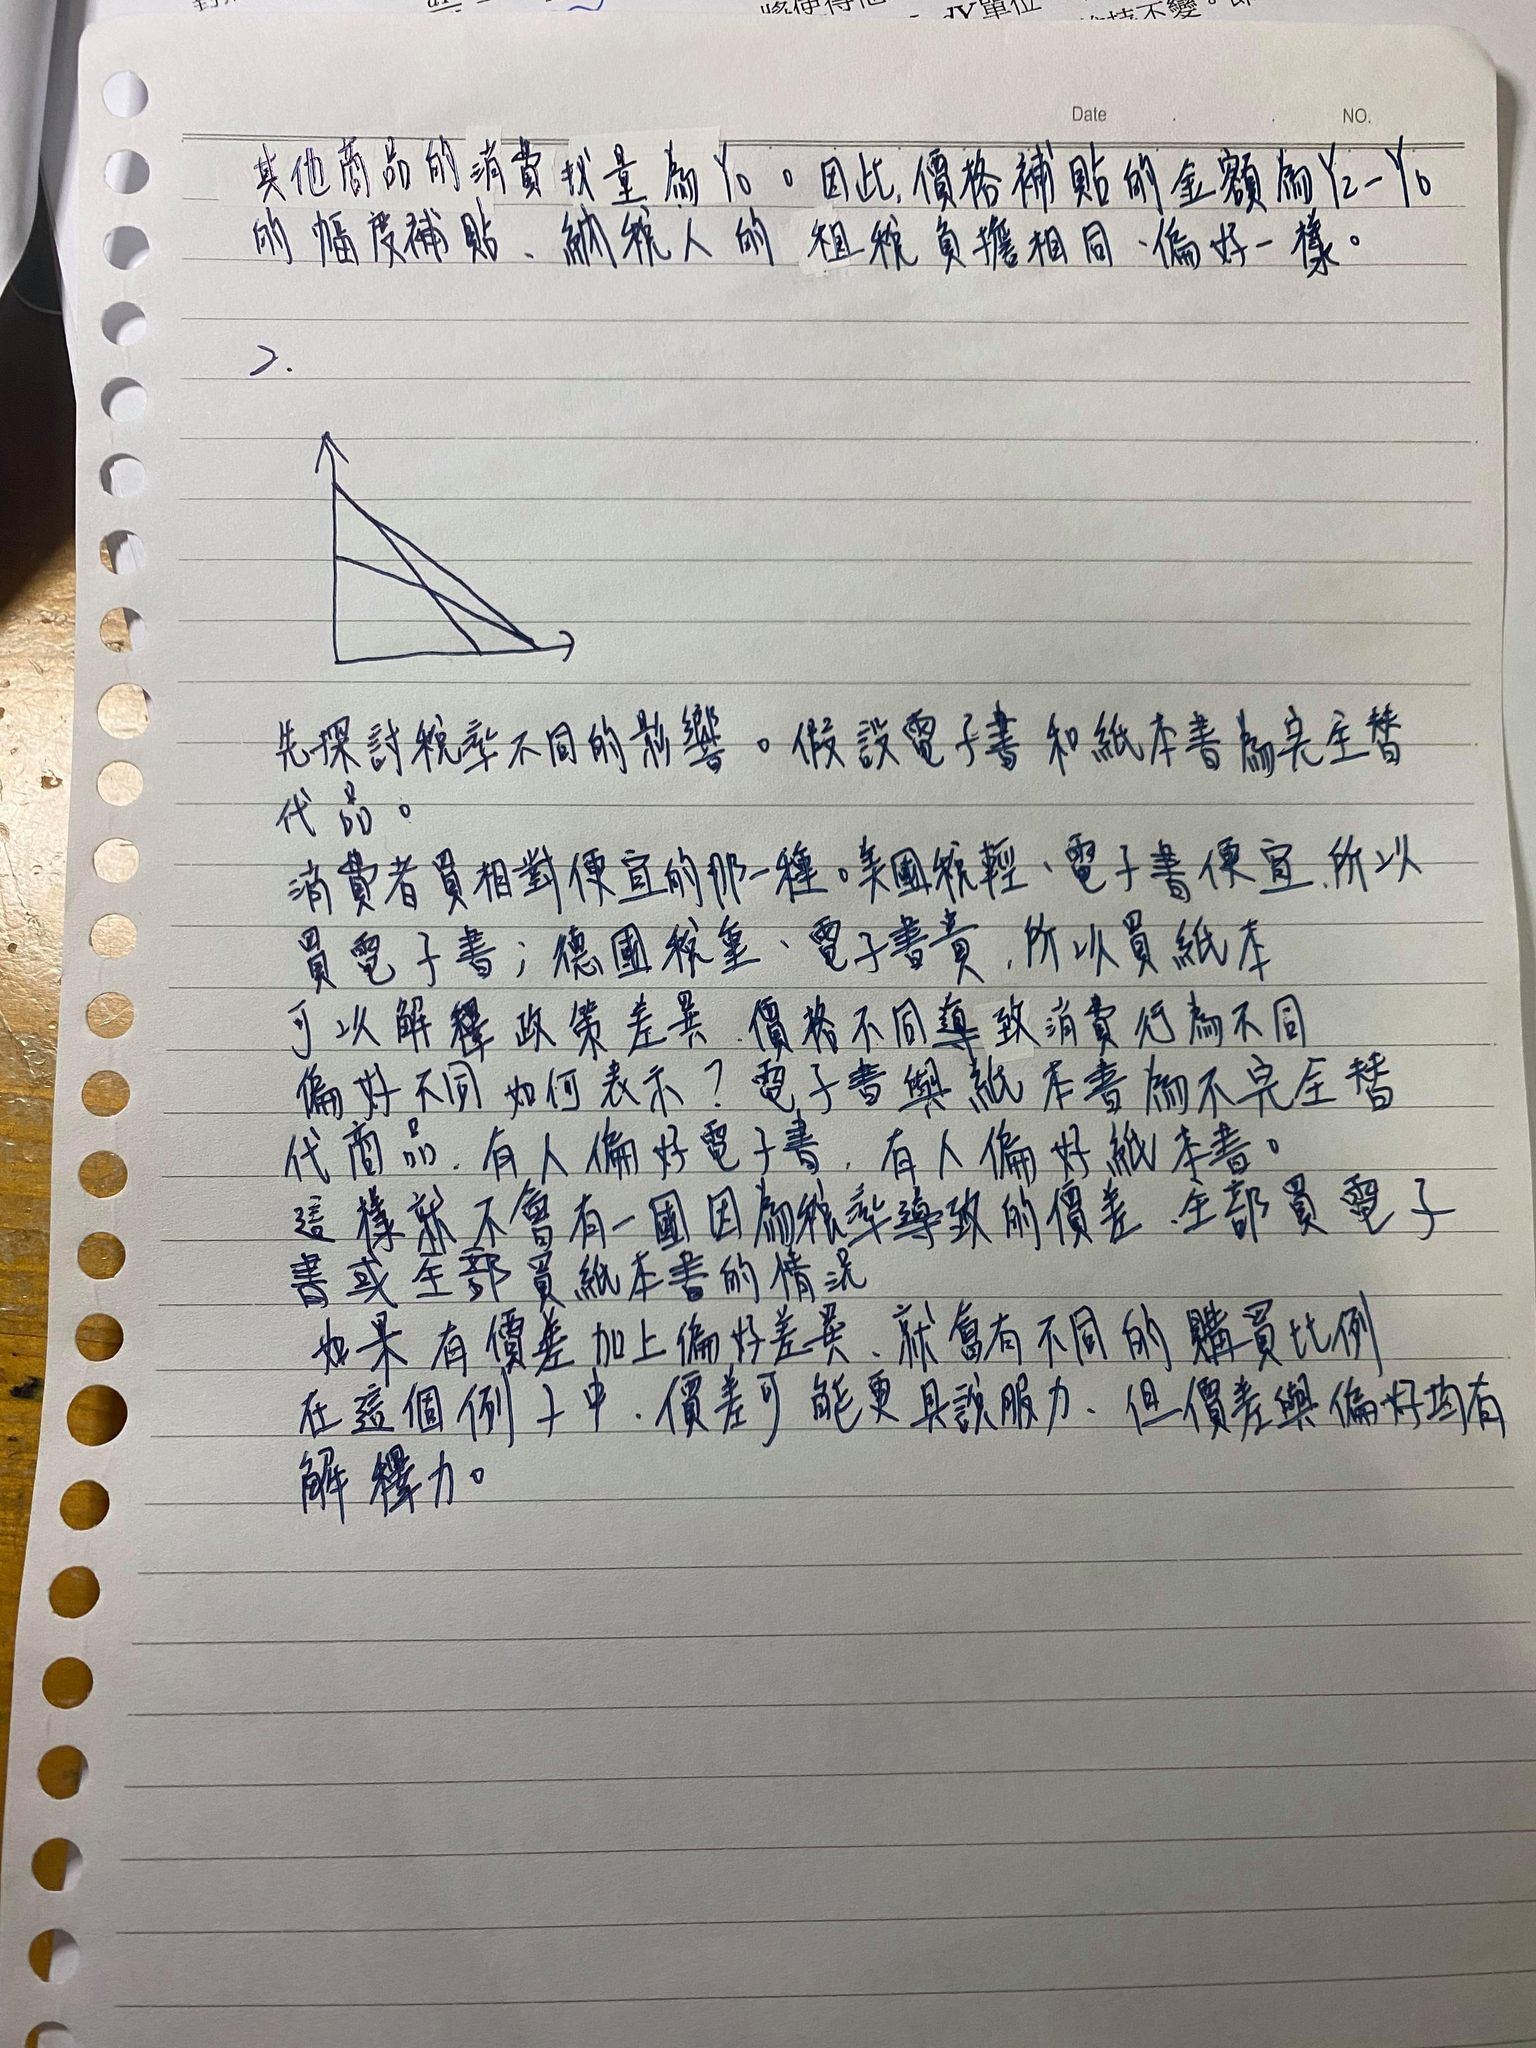 將使得他
dY單位
維持不變。即
Date . . NO.
其他商品的消費數量為Y₀。因此,價格補貼的金額為Y₂-Y₀
的幅度補貼、納稅人的租稅負擔相同、偏好一樣。
2.
先探討稅率不同的影響。假設電子書和紙本書為完全替
代品。
消費者買相對便宜的那一種。美國稅輕、電子書便宜,所以
買電子書;德國稅重、電子書貴,所以買紙本
可以解釋政策差異、價格不同導致消費行為不同
偏好不同如何表示?電子書與紙本書為不完全替
代商品、有人偏好電子書,有人偏好紙本書。
這樣就不會有一國因為稅率導致的價差、全部買電子
書或全部買紙本書的情況
如果有價差加上偏好差異、就會有不同的購買比例
在這個例子中、價差可能更具說服力、但價差與偏好均有
解釋力。